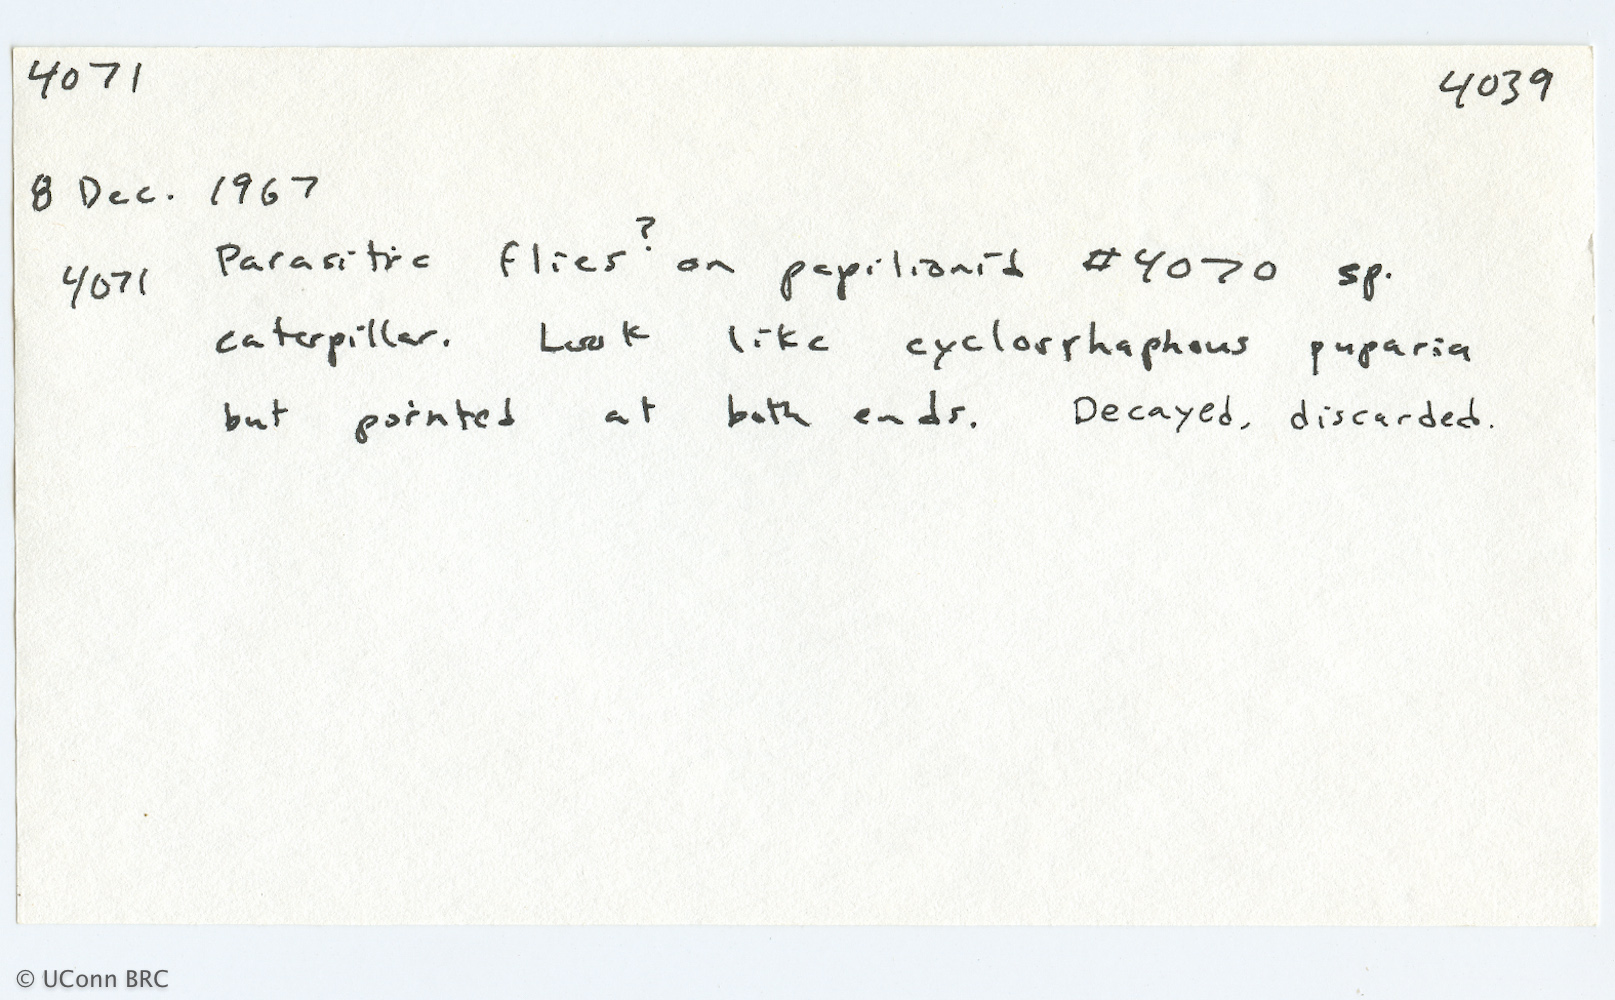 4071 4039
8 Dec. 1967
4071 Parasitic flies? on papilionid #4070 sp.
caterpillar. Look like cyclorrhaphous puparia
but pointed at both ends. Decayed, discarded.
© UConn BRC